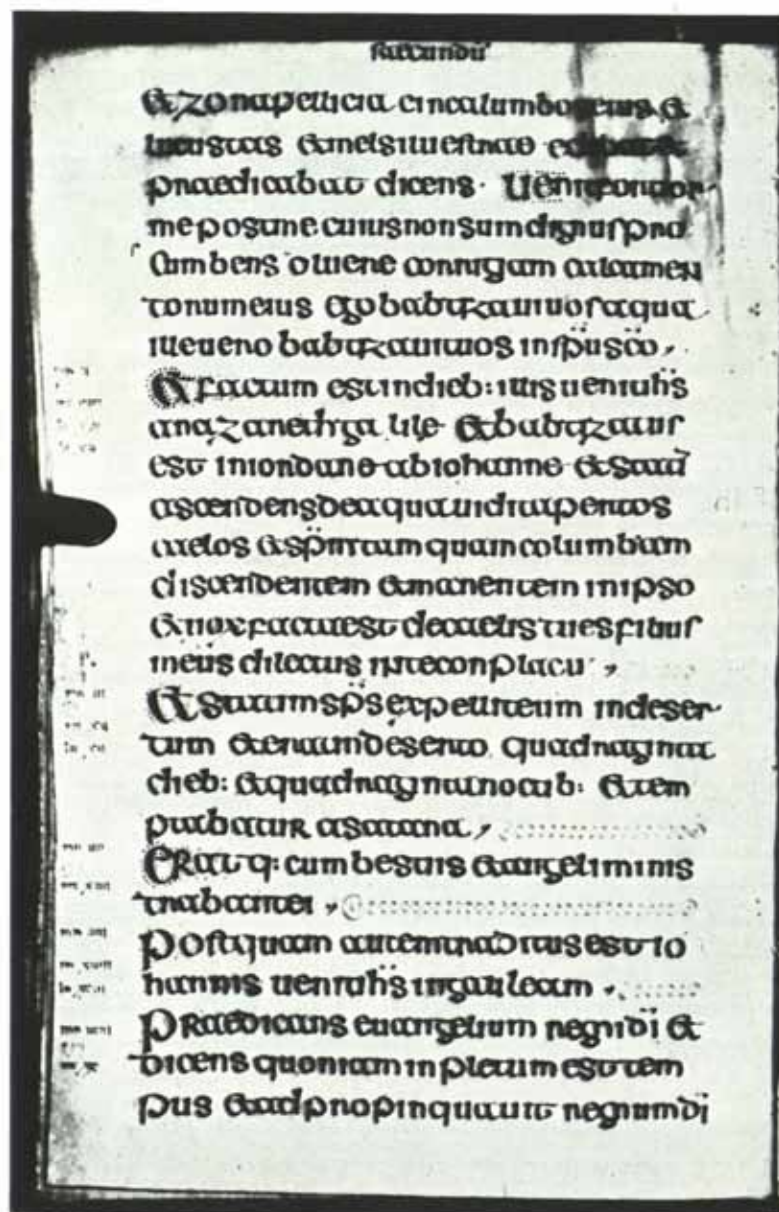 secundū
& zona pellicia circa lumbos eius &
lucustas & mel siluestrae edebat &
praedicabat dicens · uenit fortior
me post me cuius non sum dignus pro
cumbens soluere corrigam calciamen
torum eius ego babtizaui uos aqua
ille uero babtizauit uos in spū scō,
& factum est in dieb: illis uenit ihs̄
a nazareth galile & babtizatus
est in iordane ab iohanne & stati
ascendens de aqua uidit apertos
caelos & spm̄ tamquam columbam
discendentem & manentem in ipso
& uox facta est de caelis tu es filius
meus dilectus in te conplacui,
& statim sps̄ expellit eum in deser
tum & erat in deserto quadraginta
dieb: & quadraginta noctib: & tem
ptabatur a satana,
eratq: cum bestis & angeli minis
trabant ei,
postquam autem traditus est io
hannis uenit ihs̄ in galileam,
praedicans euangelium regni dī &
dicens quoniam inpletum est tem
pus & adpropinquauit regnum dī